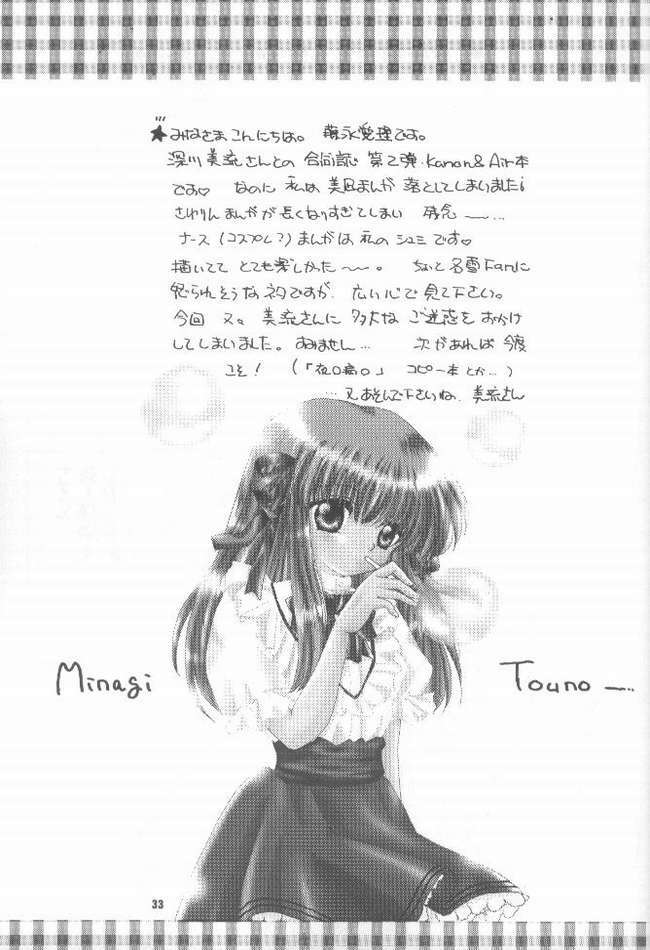 ★みなさまこんにちは。 藤永愛理です。
深川美流さんとの 合同誌 第2弾、Kanon&Air本
です♡ なのに 私は 美凪まんが 落としてしまいました!
さゆりんまんがが長くなりすぎてしまい 残念〜…
ナース(コスプレ?)まんがは 私の シュミです♡
描いてて とても楽しかった〜。 ちょっと名雪Fanに
怒られそうなネタですが、広い心で見て下さい。
今回 又。 美流さんに 多大な ご迷惑を おかけ
してしまいました。すみません… 次があれば 今度
こそ! (「夜○病○」 コピー本とか…)
…又あそんで下さいね、美流さん
Minagi
Touno〜…
33